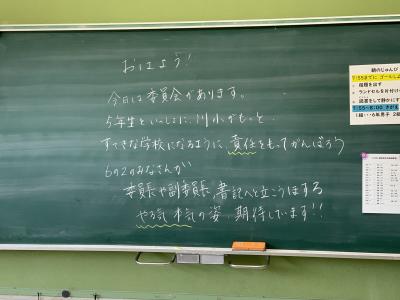 おはよう!
今日は委員会があります。
5年生といっしょに、川小がもっと…
すてきな学校になるように、責任をもってがんばろう
6の2のみなさんが
委員長や副委員長、書記へと立こうほする
やる気 本気の姿、期待しています!!
朝のじゅんび
7:55までに ゴールしよ
宿題を出す
ランドセルを片付け
読書をして静かにす
7:55~8:00